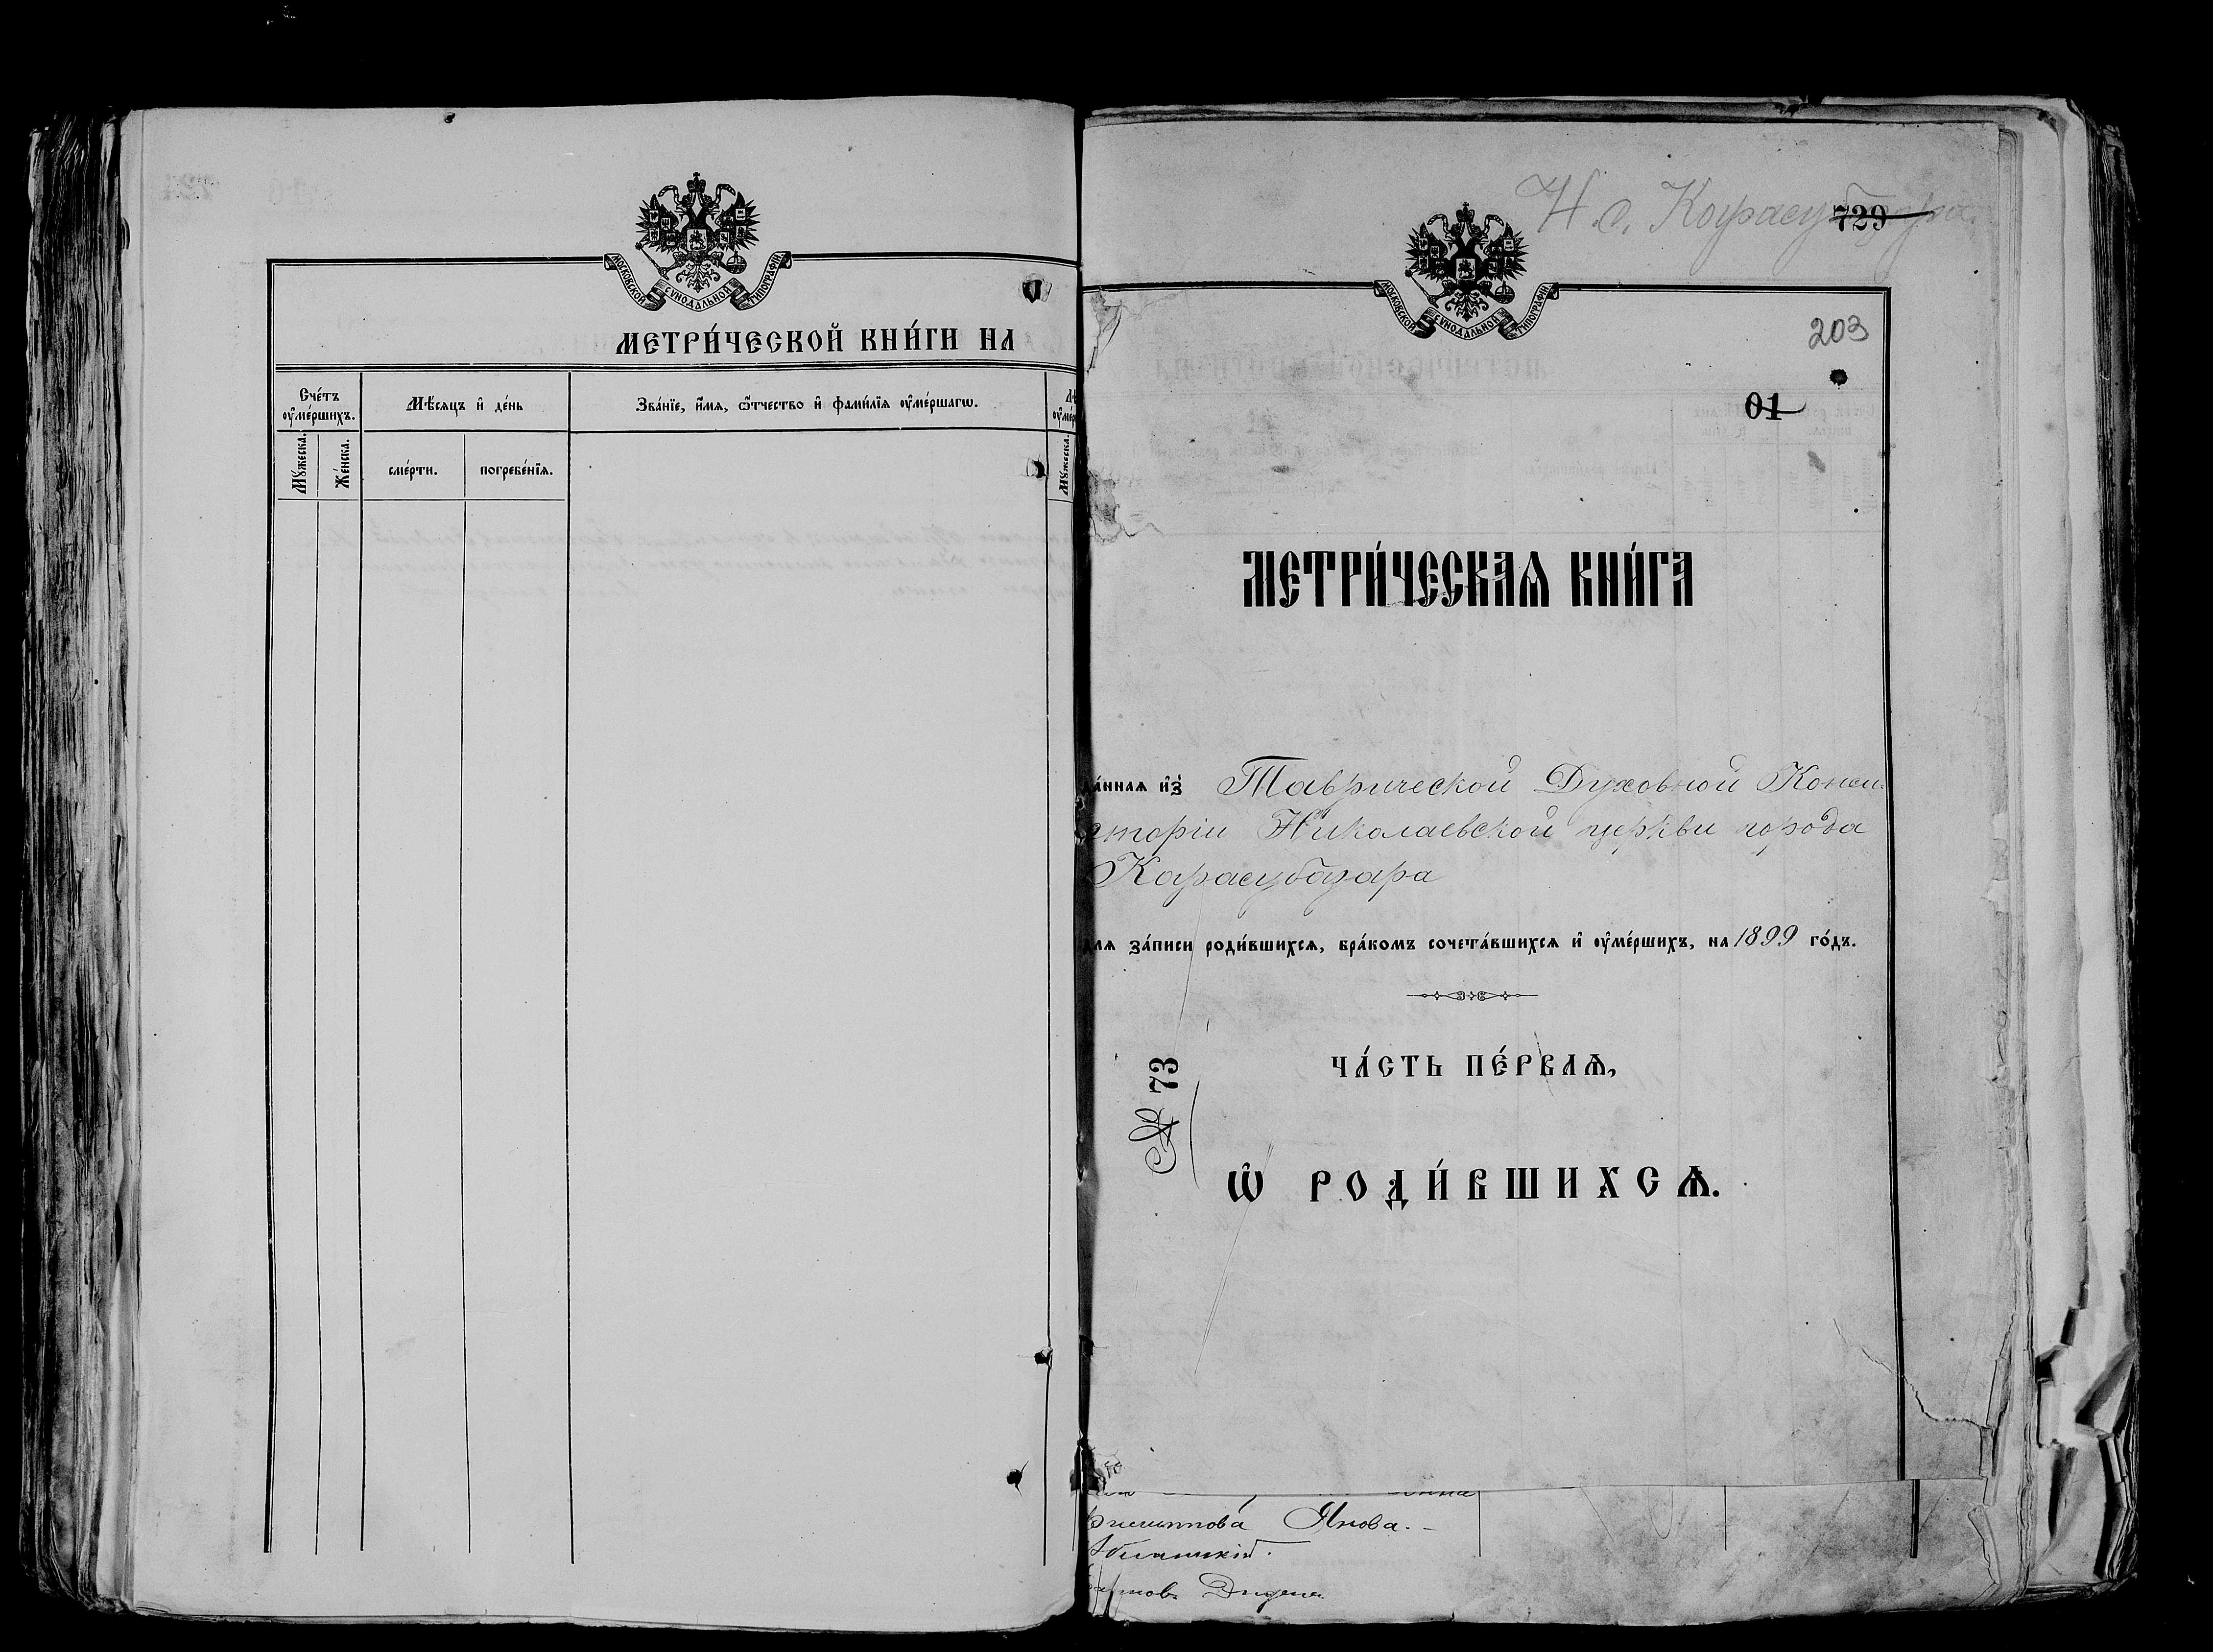 МОСКОВСКОЙ СУНОДАЛЬНОЙ ТИПОГРАФІИ
МЕТРИ́ЧЕСКОЙ КНИ́ГИ НА
Сче́тъ ᲂу҆ме́ршихъ.
Мѣ́сяцъ и҆ де́нь
Зва́нїе, и҆́мѧ, ѻ҆́тчество и҆ фами́лїѧ ᲂу҆ме́ршагѡ.
Мꙋ́жеска.
Же́нска.
сме́рти.
погребе́нїѧ.
Мꙋ́жеска.
Н. с. Карасубазара
729
МОСКОВСКОЙ СУНОДАЛЬНОЙ ТИПОГРАФІИ
203
01
МЕТРИ́ЧЕСКАѦ КНИ́ГА
да́ннаѧ и҆з̾ Таврической Духовной Конси-
сторіи Николаевской церкви города
Карасубазара
для за́писи роди́вшихсѧ, бра́комъ сочета́вшихсѧ и҆ ᲂу҆ме́ршихъ, на 1899 го́дъ.
ЧА́СТЬ ПЕ́РВАѦ,
№ 73
Ѡ҆ РОДИ́ВШИХСѦ.
Филиппова Янова.